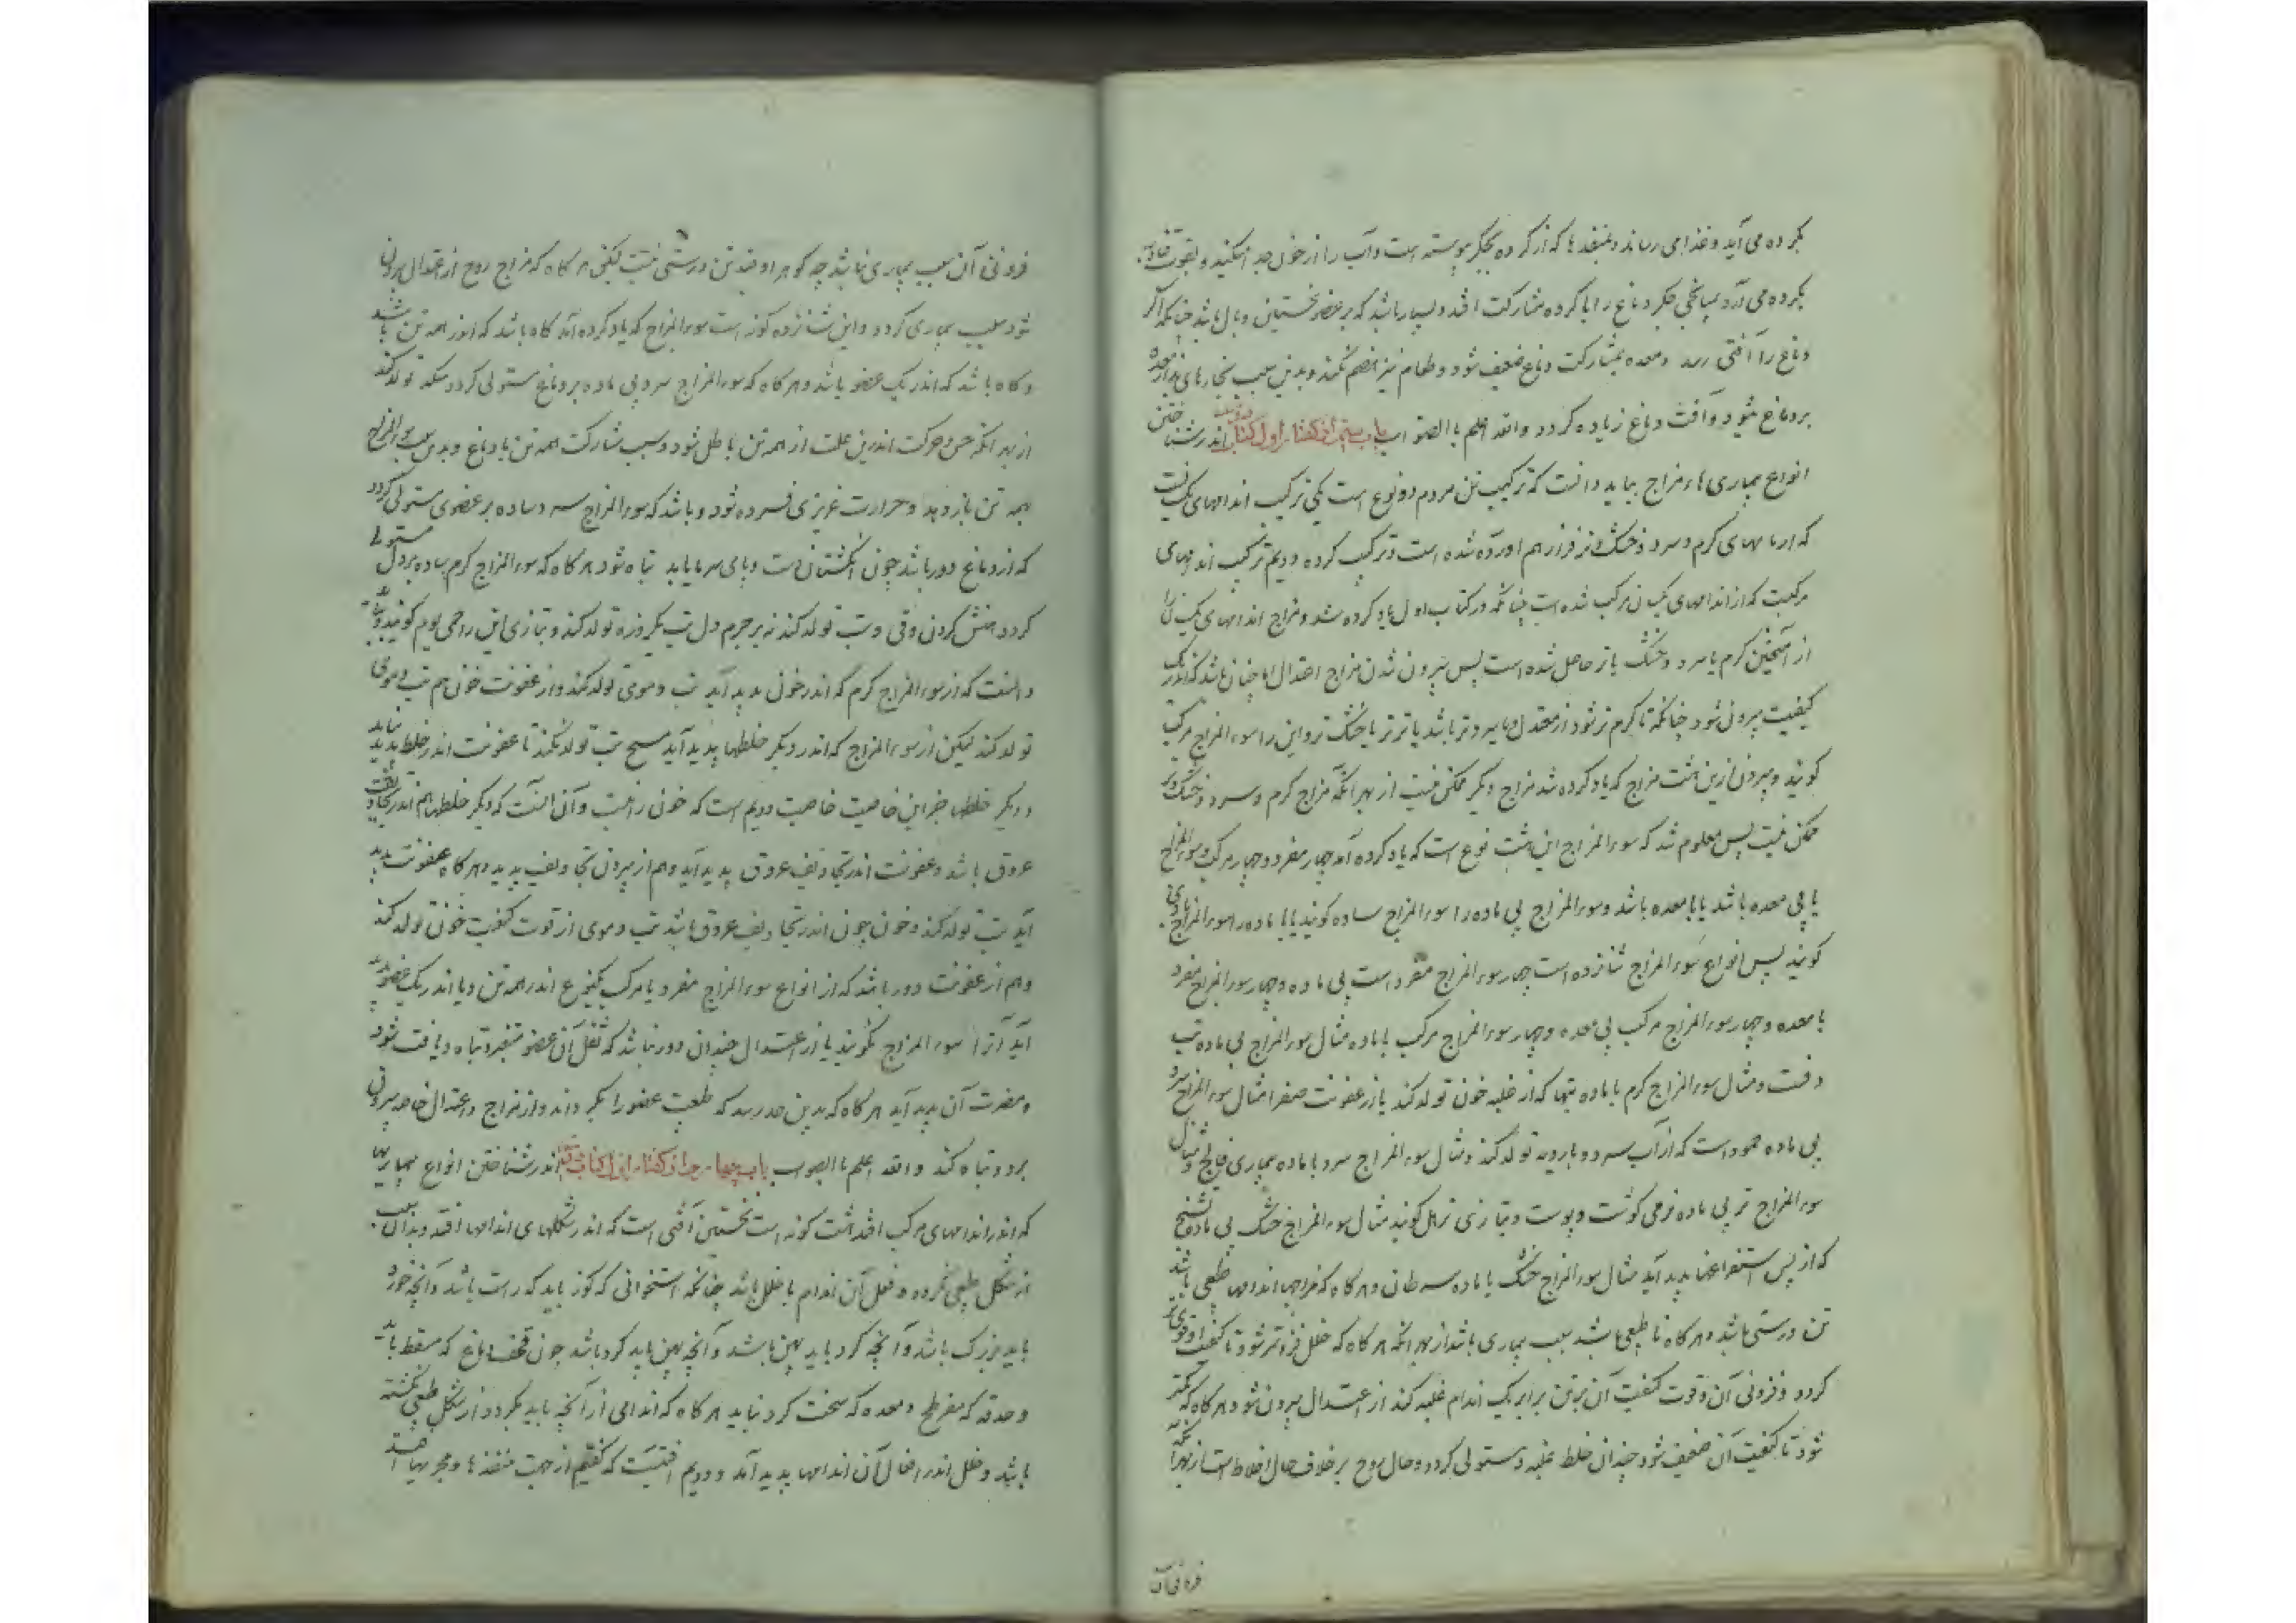 بگرده می آید و غذا می رساند و منفذها که از گرده بجگر پیوسته است و آب را از خون جدا میکند و بقوت
بگرده می آرد بمیانجی جگر دماغ را با گرده مشارکت افتد و بسیار باشد که بر عضو نخستین وبال باشد چنانکه اگر
دماغ را آفتی رسد و معده بمشارکت دماغ ضعیف شود و طعام نیز هضم نکند و بدین سبب بخارهای بد از معده
بر دماغ شود و آفت دماغ زیاده گردد والله اعلم باالصواب باب سیم از گفتار اول کتاب دویم اندر شناختن
انواع بماری هاء مزاج بباید دانست که ترکیب تن مردم دو نوع است یکی ترکیب اندامهای یکسانست
که از مایهای گرم و سرد و خشک و تر فراز هم آورده شده است و ترکیب کرده دویم ترکیب اندامهای
مرکبت که از اندامهای یکسان مرکب شده است چنانکه در کتاب اول یاد کرده شد و مزاج اندامهای یکسان را
از آمیختن گرم یا سرد و خشک یا تر حاصل شده است پس بیرون شدن مزاج اعتدال اما چنان باشد که اندر یک
کیفیت بیرون شود چنانکه تا گرم تر شود از معتدل و یا سردتر باشد یا تر تر یا خشک تر و این را سوء المزاج مرکب
گویند و بیرون ازین هشت مزاج که یاد کرده شد مزاج دیگر ممکن نیست از بهر آنکه مزاج گرم و سرد و خشک و تر
ممکن نیست پس معلوم شد که سوء المزاج این هشت نوع است که یاد کرده آمد چهار مفرد و چهار مرکب و سوء المزاج
یا بی معده باشد یا با معده باشد و سوء المزاج بی ماده را سوء المزاج ساده گویند یا با ماده را سوء المزاج مادی
گویند پس انواع سوء المزاج شانزده است چهار سوء المزاج مفرد است بی ماده و چهار سوء المزاج مفرد
با معده و چهار سوء المزاج مرکب بی معده و چهار سوء المزاج مرکب با ماده مثال سوء المزاج بی ماده تب
دقست و مثال سوء المزاج گرم با ماده تبها که از غلبه خون تولد کند یا از عفونت صفرا مثال سوء المزاج سرد
بی ماده جمود است که از آب سرد و باروبه تولد کند و مثال سوء المزاج سرد با ماده بیماری فالج و مثال
سوء المزاج تر بی ماده نرمی گوشت و پوست و بتازی ترهل گویند مثال سوء المزاج خشک بی ماده تشنج
که از پس استفراغها پدید آید مثال سوء المزاج خشک با ماده سرطان و هرگاه که مزاجها اندامها طبعی باشد
تن درستی باشد و هرگاه نا طبعی باشد سبب بیماری باشد از بهر آنکه هرگاه که خلل فزون تر شود تا کیفیت او قوی تر
گردد و فزونی آن و قوت کیفیت آن بر تن برابر یک اندام غلبه کند از اعتدال بیرون شود و هرگاه که کمتر
شود تا کیفیت آن ضعیف شود چندان خلط غلبه و ستولی گردد و حال روح بر خلاف حال اخلاط است از بهر آنکه
فزونی آن
فزونی آن سبب بیماری نباشد چه گوهر او ضد تن درستی نیست لیکن هرگاه که مزاج روح از اعتدال بیرون
شود سبب بیماری گردد و این شانزده گونه است سوء المزاج که یاد کرده آمد گاه باشد که اندر همه تن باشد
و گاه باشد که اندر یک عضو باشد و هرگاه که سوء المزاج سرد بی ماده بر دماغ ستولی گردد سکته تولد کند
از بهر آنکه حس و حرکت اندرین علت از همه تن باطل شود و سبب مشارکت همه تن با دماغ و بدین سبب سوء المزاج
بهمه تن باز دهد و حرارت غریزی فسرده شود و باشد که سوء المزاج سرد ساده بر عضوی ستولی گردد
که از دماغ دور باشد چون انگشتان دست و پای سرما یابد تباه شود هرگاه که سوء المزاج گرم ساده بر دل ستولی
گردد غش کردن وقی و تب تولد کند نه بر جرم دل تب یکروزه تولد کند و بتازی این را حمی یوم گویند
دانست که از سوء المزاج گرم که اندر خون پدید آید تب دموی تولد کند و از عفونت خون هم تب دموی
تولد کند لیکن از سوء المزاج که اندر دیگر خلطها پدید آید هیچ تب تولد نکند تا عفونت اندر خلط پدید نیاید
و دیگر خلطها جز این خاصیت خاصیت دویم است که خون راست و آن آنست که دیگر خلطها هم اندر تجاویف
عروق باشد و عفونت اندر تجاویف عروق پدید آید و هم از بیرون تجاویف پدید و هرگاه عفونت پدید
آید تب تولد کند و خون چون اندر تجاویف عروق باشد تب دموی از قوت کیفیت خون تولد کند
و هم از عفونت دور باشد که از انواع سوء المزاج مفرد یا مرکب یکنوع اندر همه تن و یا اندر یک عضو پدید
آید آنرا سوء المزاج نگویند یا از اعتدال چندان دور نباشد که فعل آن عضو متغیر و تباه و یافت شود
و مضرت آن پدید آید هرگاه که بدین حد رسد که طبعیت عضو را بگرداند و از مزاج و اعتدال خاصه بیرون
برد و تباه کند والله اعلم باالصوب باب چهارم از گفتار اول کتاب دویم اندر شناختن انواع بیماریها
که اندر اندامهای مرکب افتد هشت گونه است نخستین آفتی است که اندر شکلهای اندامها افتد و بدان سبب
از شکل طبعی بگردد و فعل آن اندام با خلل باشد چنانکه استخوانی که کوز باید که راست باشد و آنچه خورد
باید بزرگ باشد و آنچه گرد باید پهن باشد و آنچه پهن باید گرد باشد چون قحف دماغ که مسقط باشد
و حدقه که مفرطح و معده که سخت گرد نباید هرگاه که اندامی از آنچه باید بگردد از شکل طبعی بگشته
باشد و خلل اندر افعال آن اندامها پدید آمد و دویم آفتیست که گفتیم از جهت منفذها و مجریها افتد